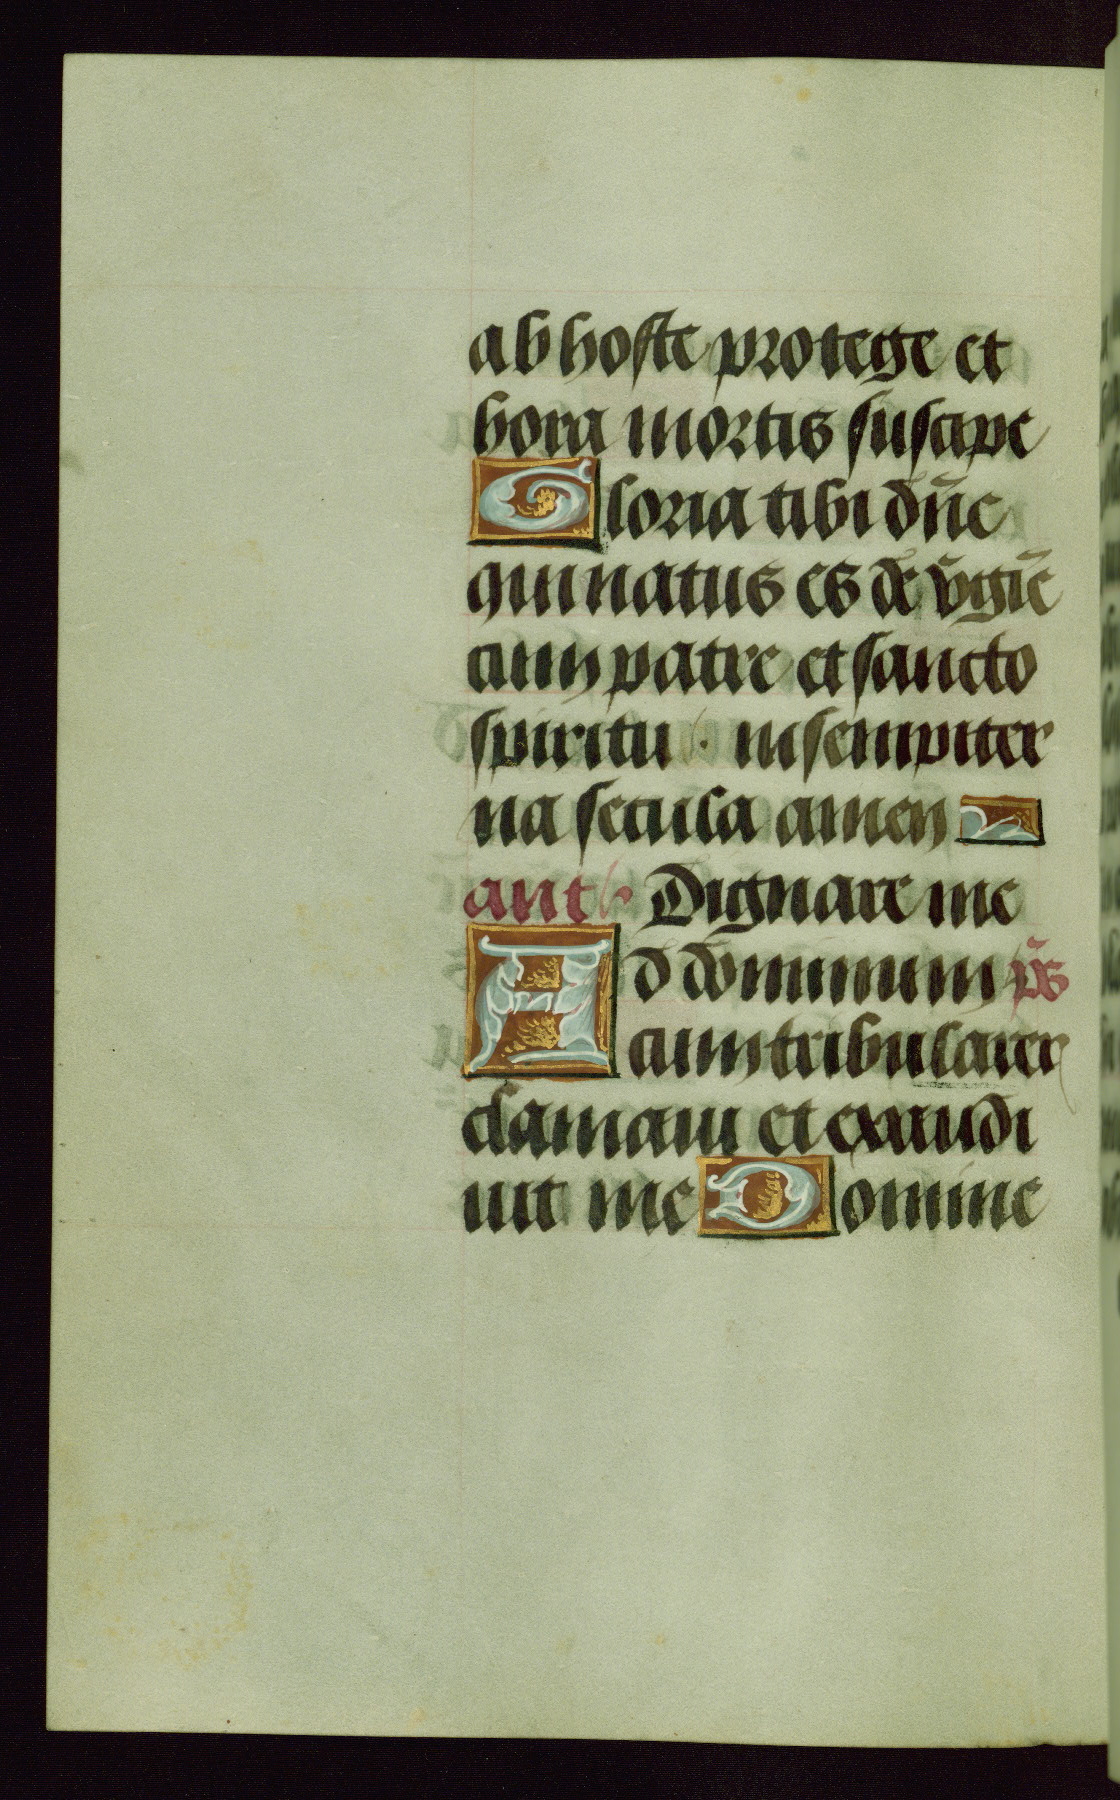 ab hoste protege et
hora mortis suscipe
Gloria tibi dn̄e
qui natus es de v̄gīe
cum patre et sancto
spiritu . in sempiter
na secula amen
ant Dignare me
Ad dominum ps̄
cum tribularer
clamaui et exaudi
uit me Domine